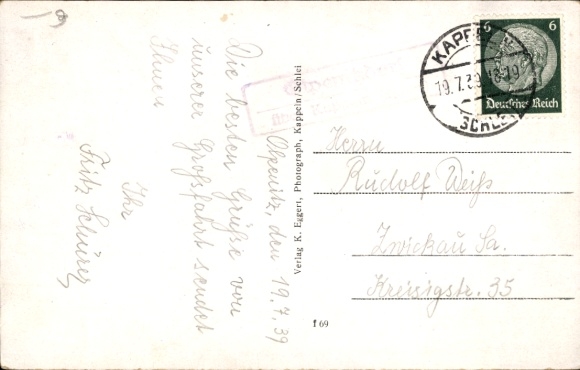 19
Olpenitz, den 19.7.39
Die besten Grüße von
unserer Großfahrt sendet
Ihnen
Ihr
Fritz
Verlag K. Eggert, Photograph, Kappeln/Schlei
T 69
KAPPELN
19.7.39 18-19
SCHLEI
6 6
Deutsches Reich
Herrn
Rudolf Weiß
Zwickau Sa.
Kreisigstr. 35